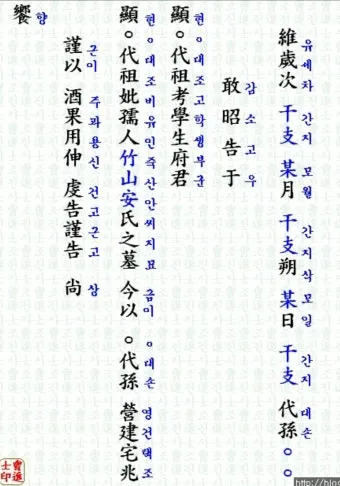 維歲次 干支 某月 干支朔 某日 干支 代孫 ○○
유세차 간지 모월 간지삭 모일 간지 대손
敢昭告于
감소고우
顯○代祖考學生府君
현ㅇ대조고학생부군
顯○代祖妣孺人竹山安氏之墓 今以 ○代孫 營建宅兆
현ㅇ대조비유인죽산안씨지묘 금이 ㅇ대손 영건택조
謹以 酒果用伸 虔告謹告 尙
근이 주과용신 건고근고 상
饗
향